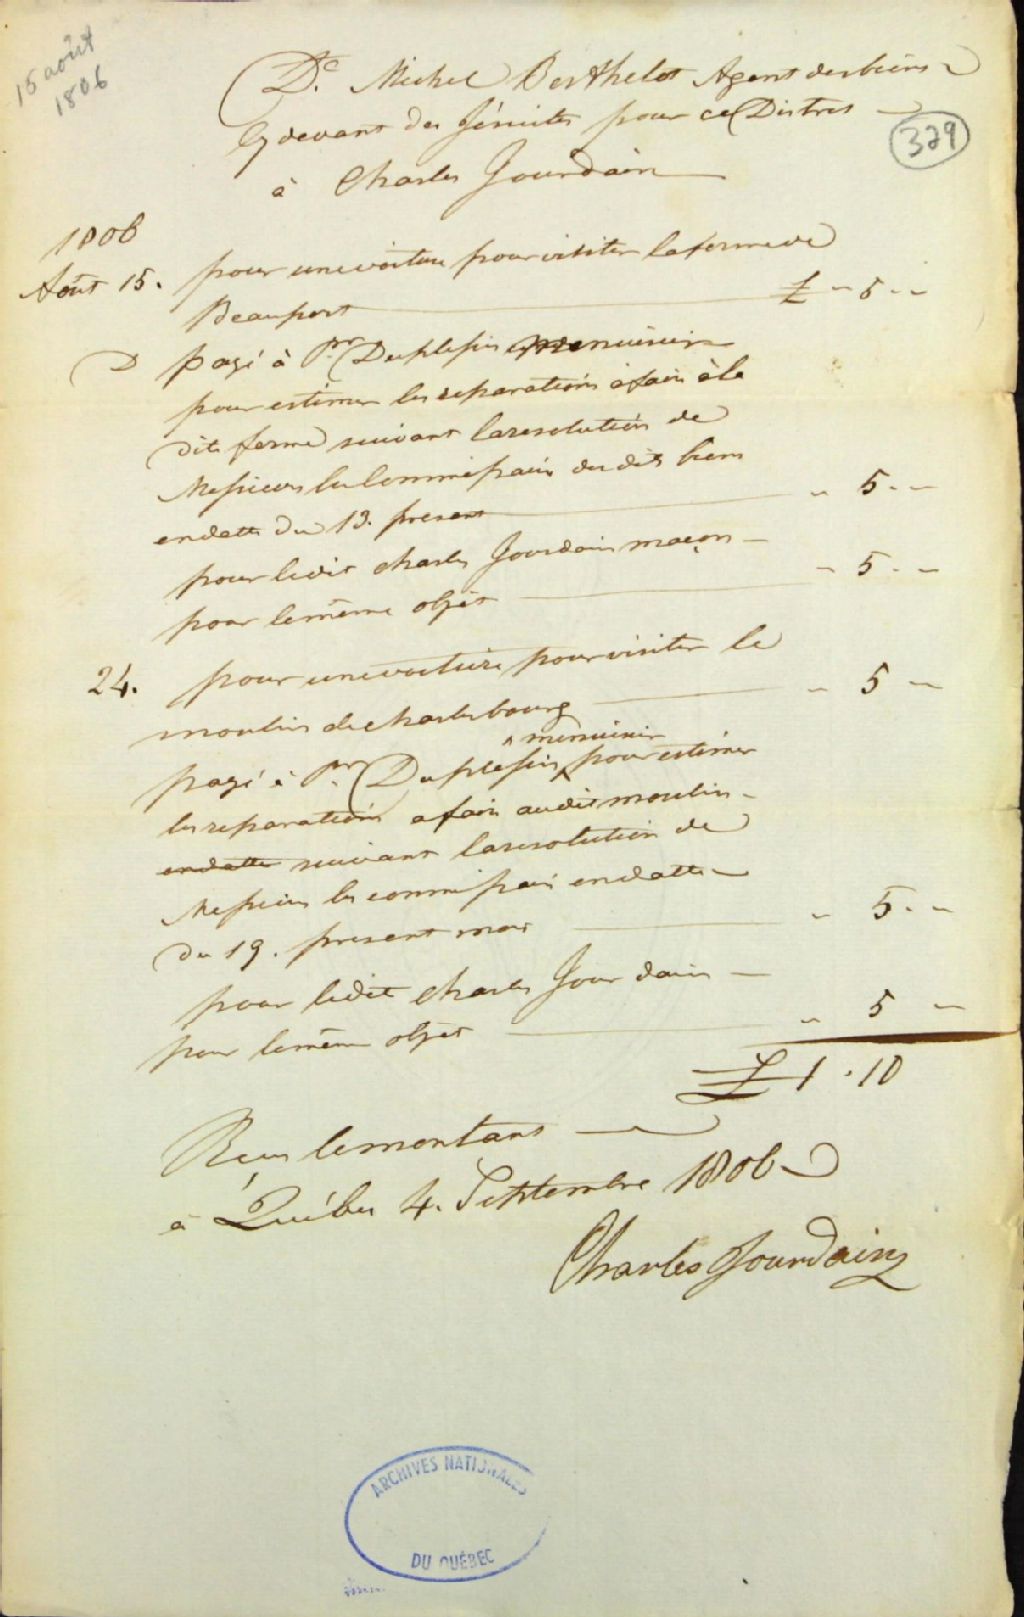 15 août
1806
Dr. Michel Berthelot Agent des biens
Cy devant des Jésuites pour ce District
379
à Charles Jourdain
1806
Août 15. pour une voiture pour visiter la ferme de
Beauport £ " 5 " "
D payé à Pre Duplesis menuisier
pour estimer les reparations a faire à la
dite ferme suivant la resolution de
Messieurs les Commissaire des dits biens
en datte du 13. present " 5 . "
pour ledit Charles Jourdain maçon
pour le même objet " 5 . "
24. pour une voiture pour visiter le
moulin de Charlesbourg " 5 "
menuisier
payé à Pre Duplesis ^ pour estimer
les reparations a faire audit moulin
en datte suivant la resolution de
Messieurs les commissaire en datte
du 19. present mois " 5 . "
pour ledit Charles Jourdain
pour le même objet " 5 "
£ 1 . 10
Reçu le montant
à Québec 4. Septembre 1806
Charles Jourdain
ARCHIVES NATIONALES
DU QUÉBEC